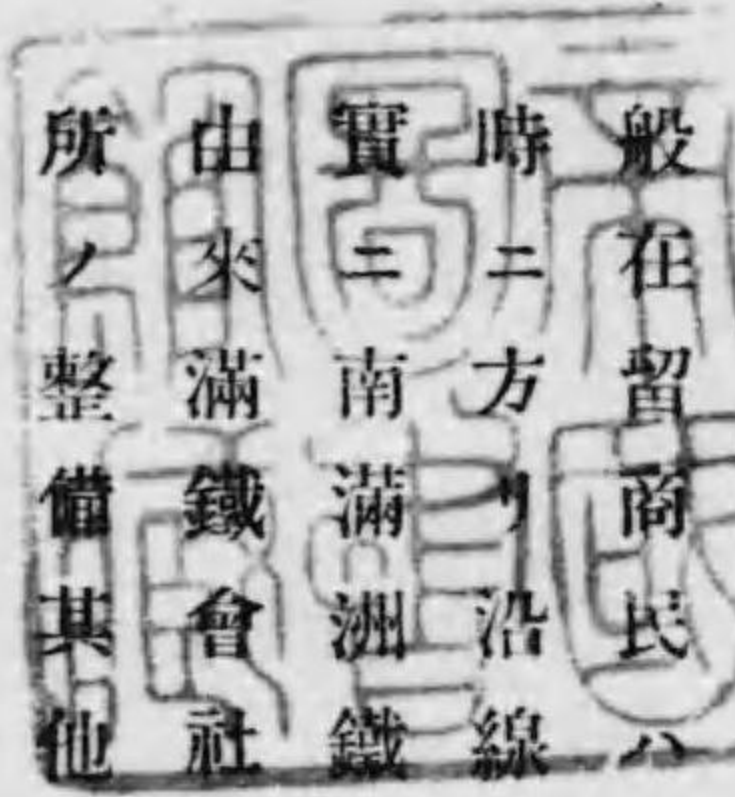 般在留商民ハ
時ニ方リ沿線
實ニ南滿洲鐵
由來滿鐵會社
所ノ整備其他